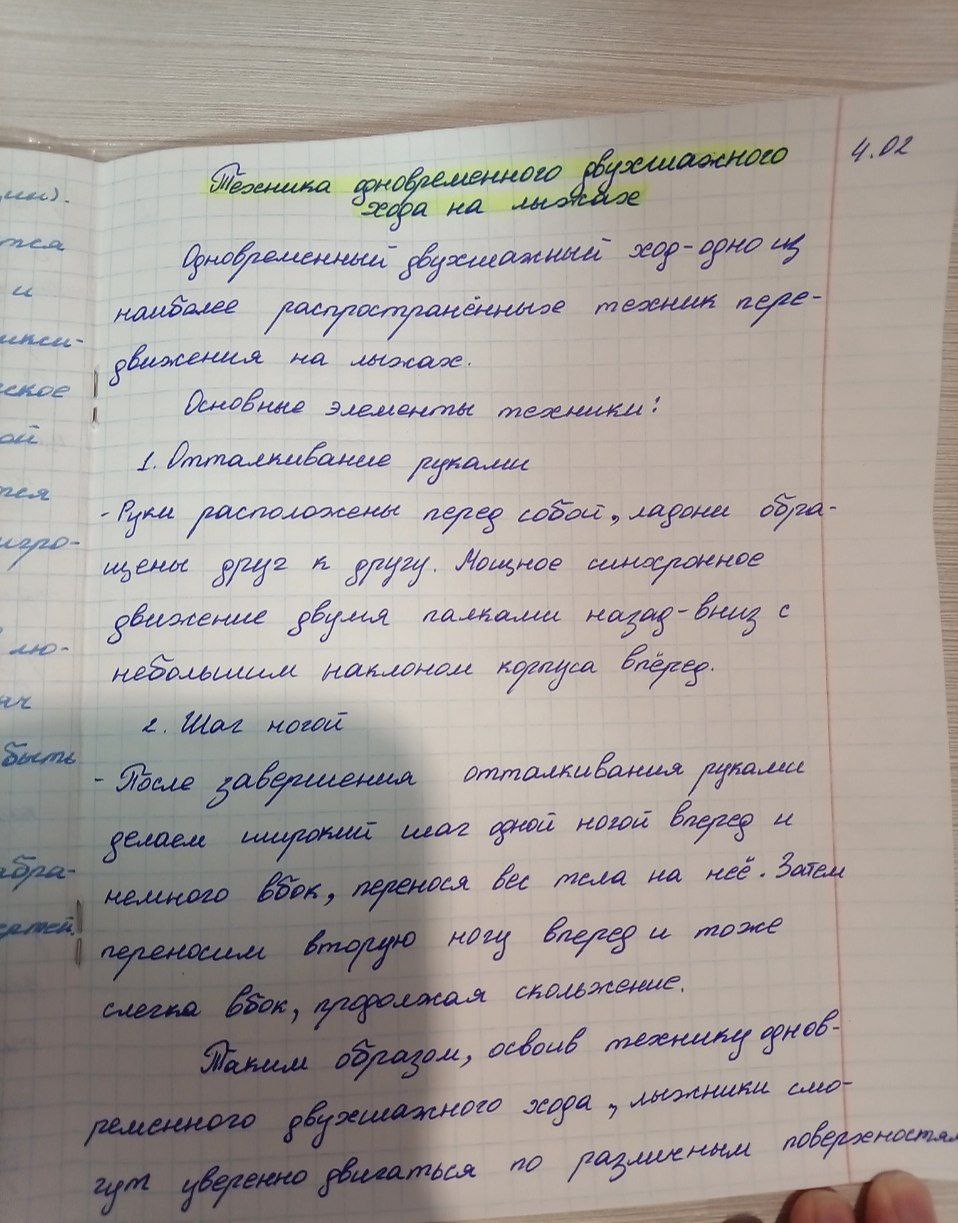 4.02
Техника одновременного двухшажного
хода на лыжах
Одновременный двухшажный ход-одно из
наиболее распространённых техник пере-
движения на лыжах.
Основные элементы техники:
1. Отталкивание руками
- Руки расположены перед собой, ладони обра-
щены друг к другу. Мощное синхронное
движение двумя палками назад-вниз с
небольшим наклоном корпуса вперёд.
2. Шаг ногой
- После завершения отталкивания руками
делаем широкий шаг одной ногой вперед и
немного вбок, перенося вес тела на неё. Затем
переносим вторую ногу вперед и тоже
слегка вбок, продолжая скольжение.
Таким образом, освоив технику однов-
ременного двухшажного хода, лыжники смо-
гут уверенно двигаться по различным поверхностям
и
ской
ой
игро-
лю-
быть